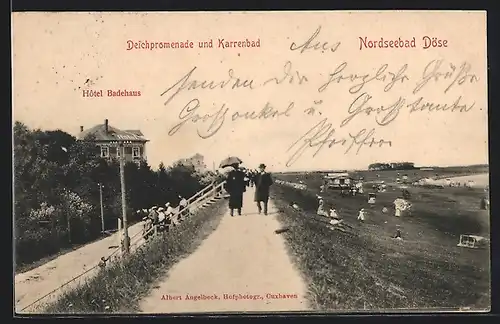 Deichpromenade und Karrenbad
Nordseebad Döse
Hôtel Badehaus
Aus
senden Dir herzliche Grüße
Großonkel u. Großtante
Albert Angelbeck, Hofphotogr., Cuxhaven